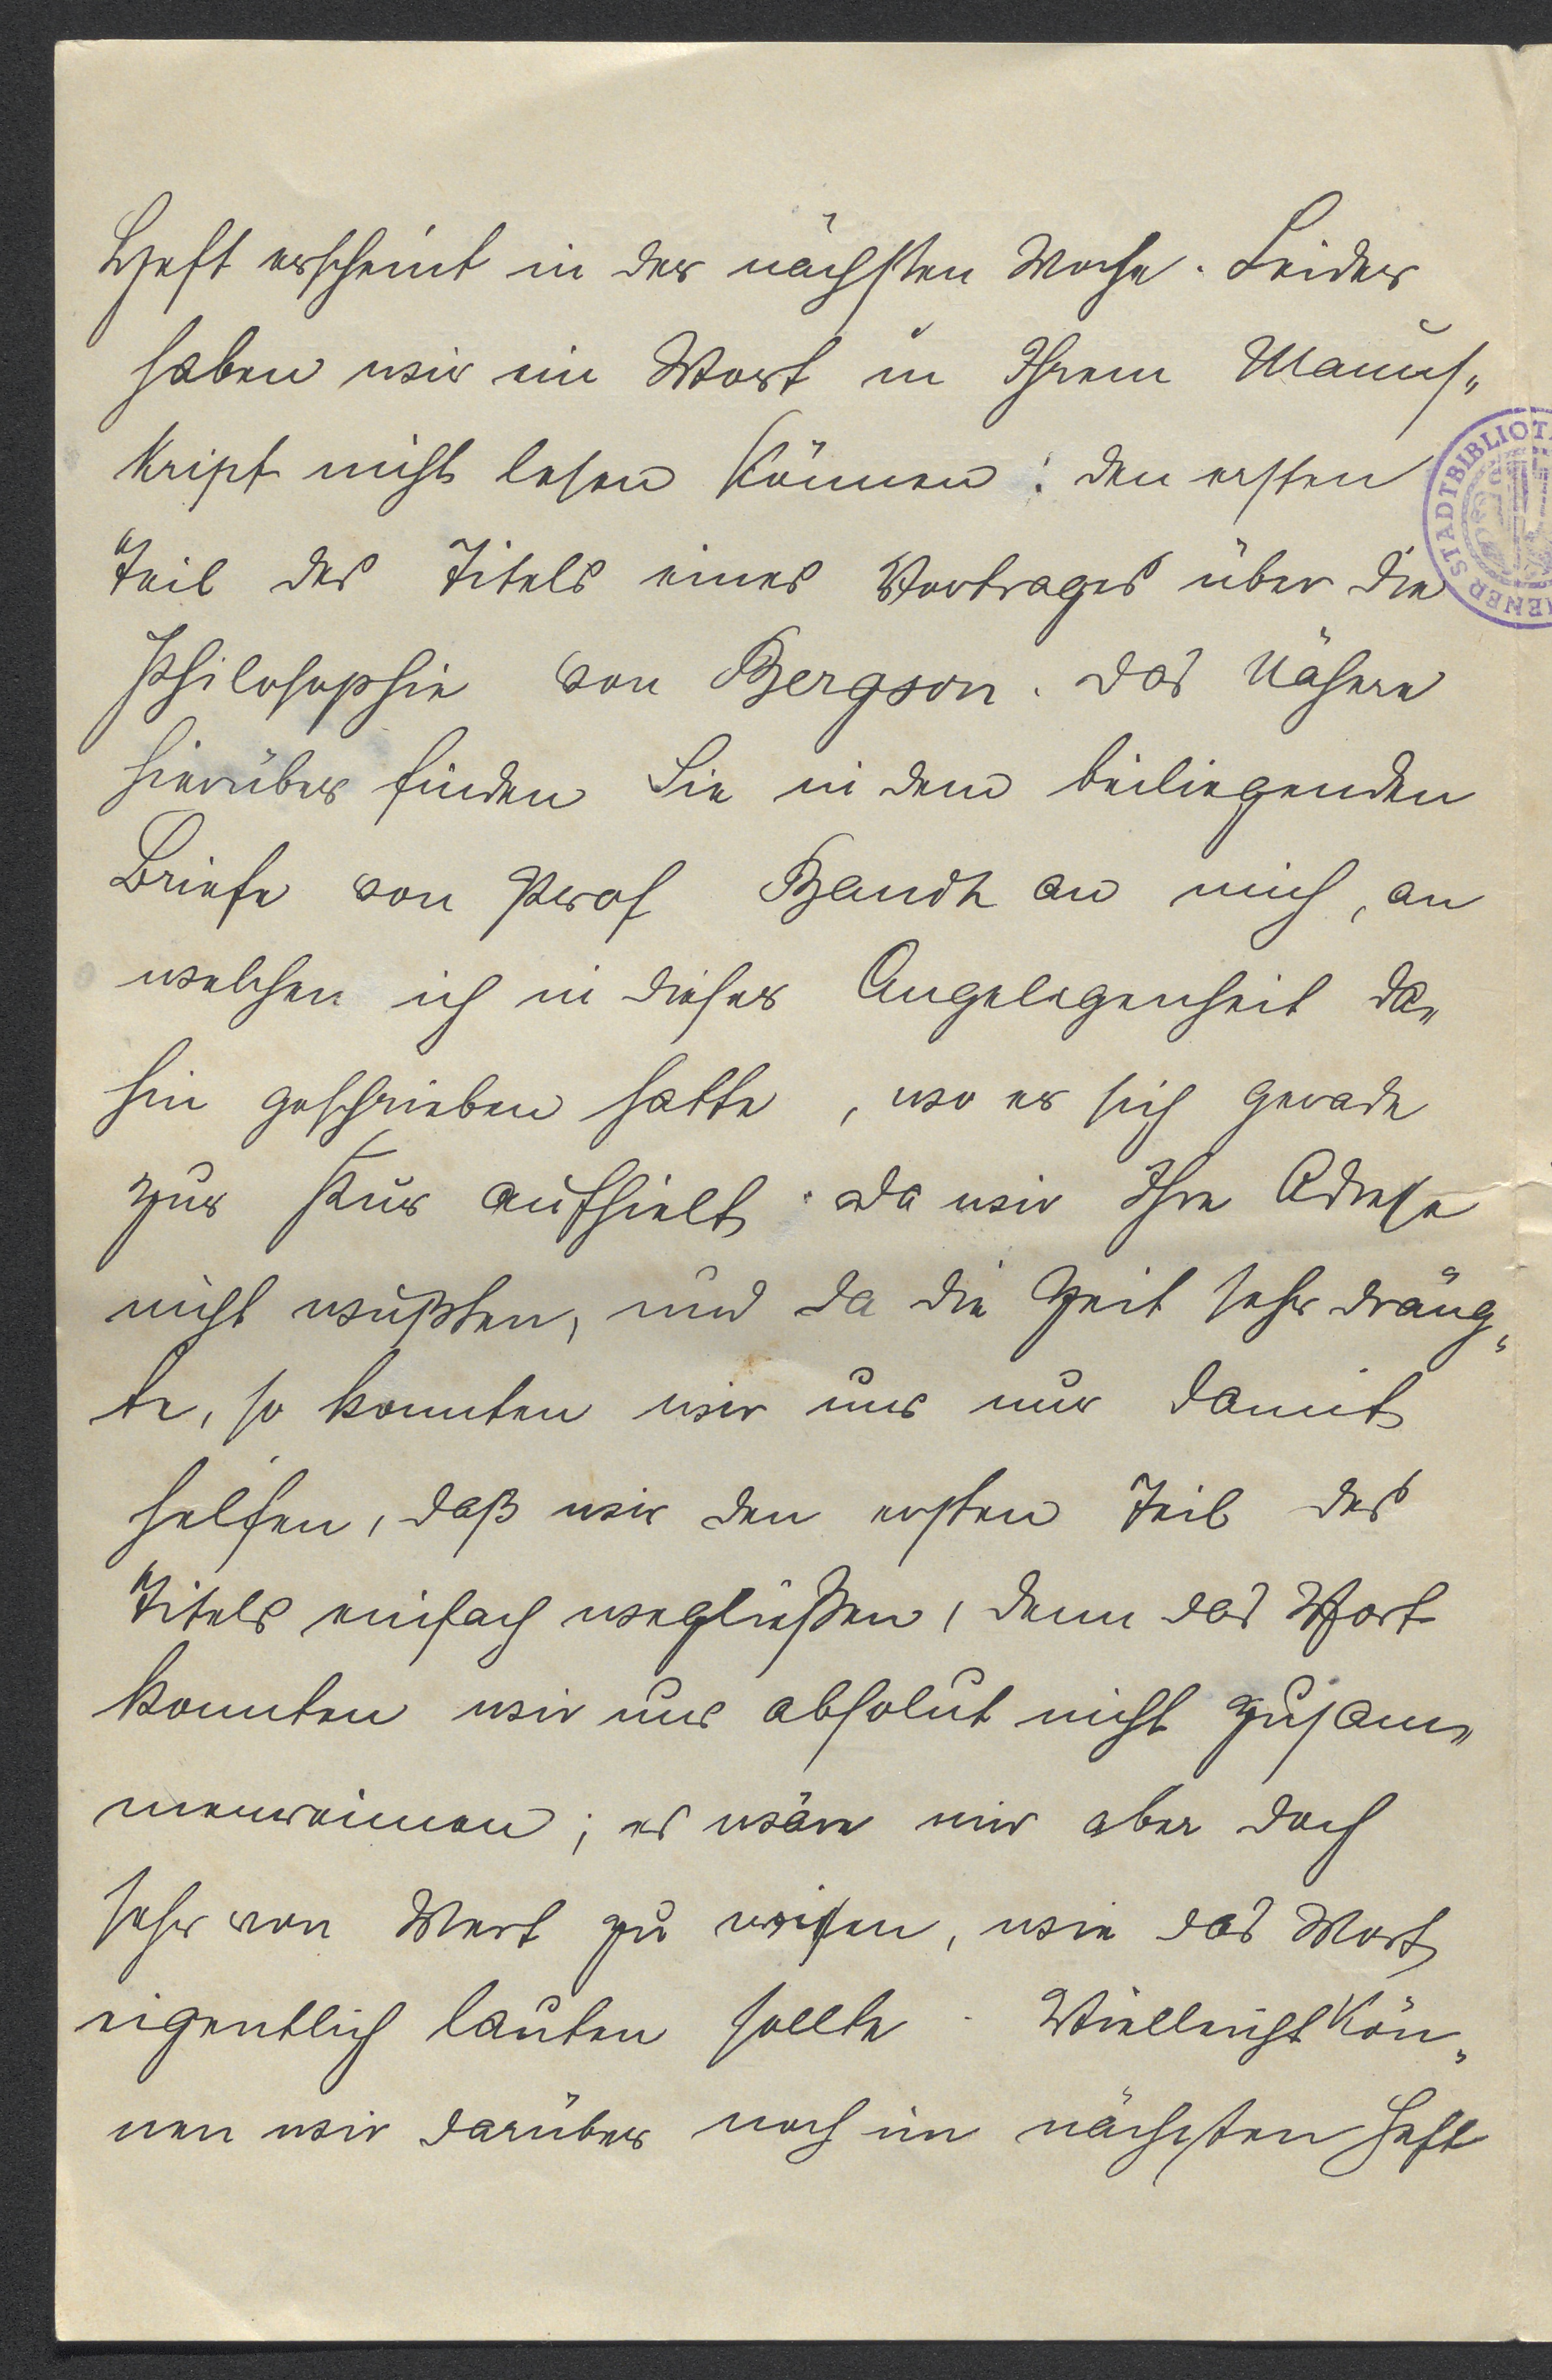 Heft erscheint in der nächsten Woche. Leider
haben wir ein Wort in Ihrem Manus„
kript nicht lesen können: den ersten
Teil des Titels eines Vortrages über die
Philosophie von Bergson. Das Nähere
hierüber finden Sie in dem beiliegenden
Briefe von Prof an mich, an
welchen ich in dieser Angelegenheit da„
hin geschrieben hatte, wo er sich gerade
zur Kur aufhielt. Da wir Ihre Adresse
nicht wußten, und da die Zeit sehr dräng„
te, so konnten wir uns nur damit
helfen, daß wir den ersten Teil des
Titels einfach wegließen, denn das Wort
konnten wir uns absolut nicht zusam„
menreimen; es wäre mir aber doch
sehr von Wert zu wissen, wie das Wort
eigentlich lauten sollte. Vielleicht kön„
nen wir darüber noch im nächsten Heft
STADTBIBLIOT